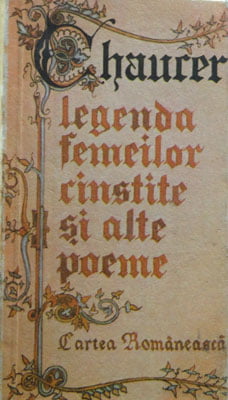 Chaucer
legenda
femeilor
cinstite
și alte
poeme
Cartea Românească